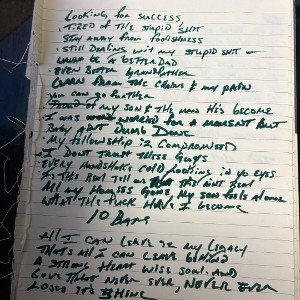 Looking for success,
Tired of the stupid shit
Stay away from foolishness
Still Dealing wit my stupid shit -
Wanna be a better Dad
Even better grandfather
Chain the & my pain
You can go further
of my son & the man He's become
I was worried for a moment but
Boy Ain't Dumb Done
My fellowship iz compromised
I Don't Trust These Guys
Every handshake cold looking in yo eyes
Iz this real tell us this ain't real
All my Homies Gone, my son feels alone
What the fuck Have I become
10 Bars
All I can leave iz my legacy
That's all I can leave behind
A strong Heart will soul. And
Love that never ever, never ever
Loses it's Shine